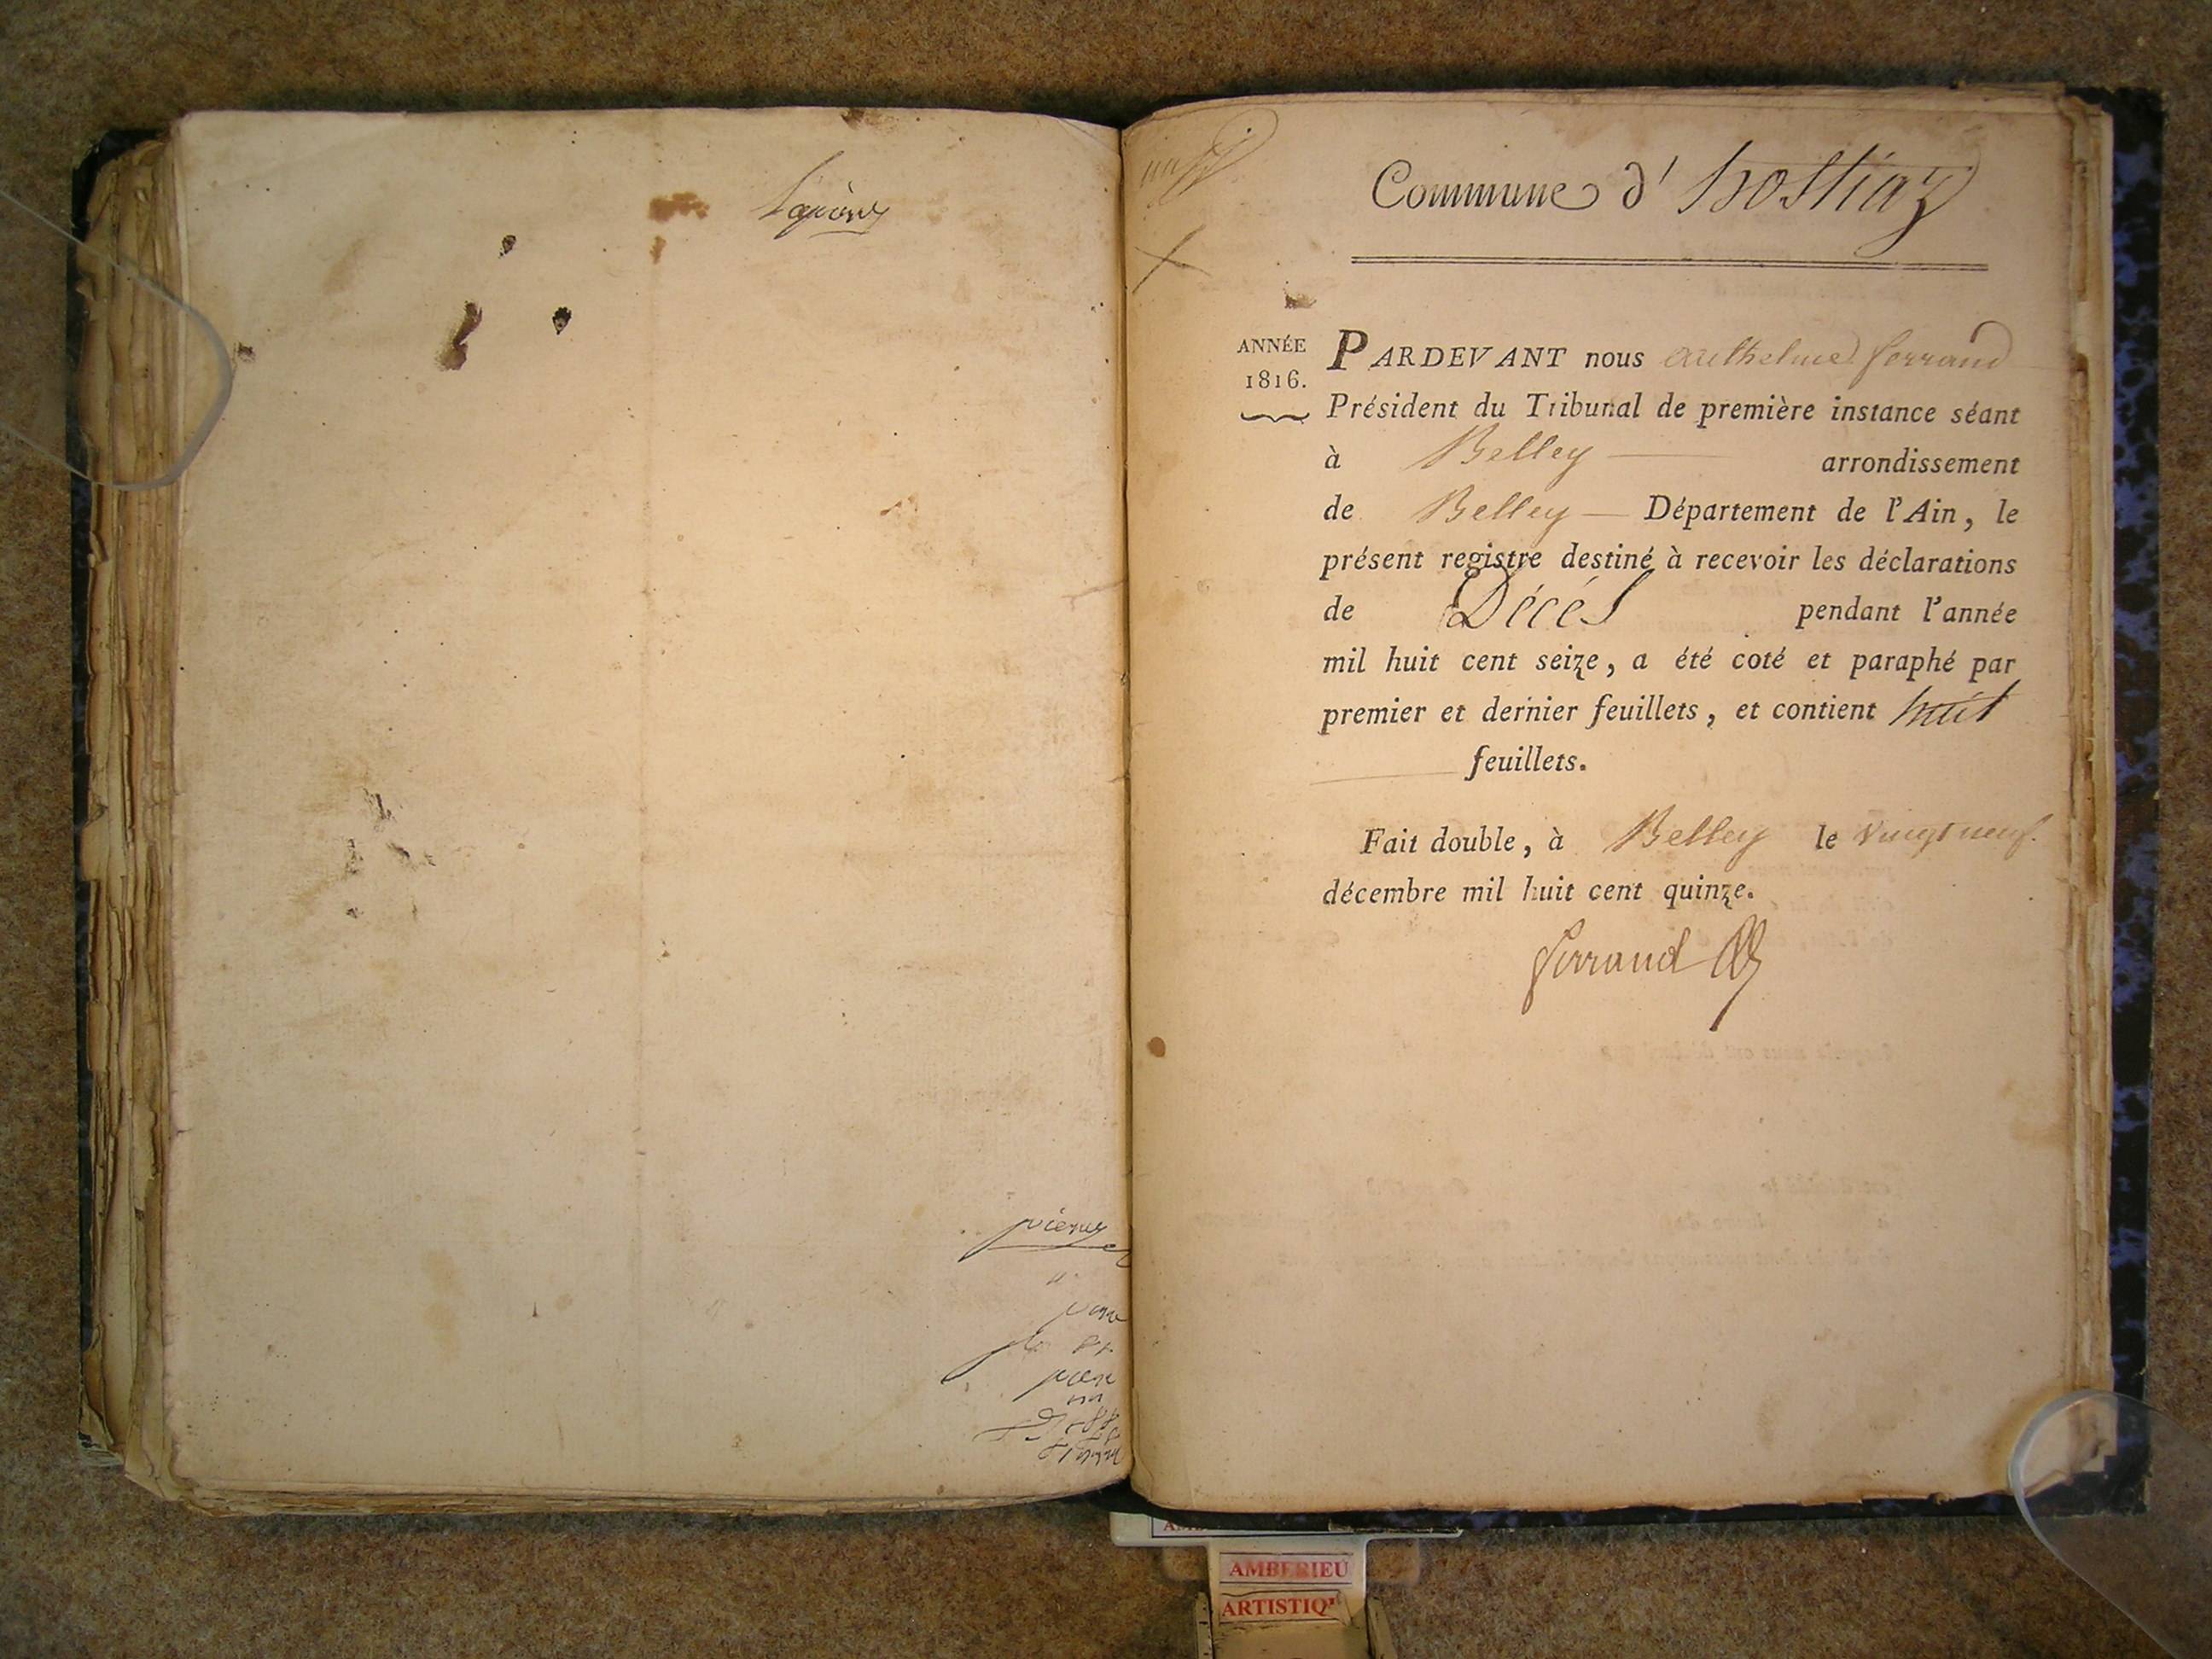 Commune d' hostiaz
ANNÉE
1816.
PARDEVANT nous Anthelme ferrand
Président du Tribunal de première instance séant
à Belley arrondissement
de Belley Département de l'Ain, le
présent registre destiné à recevoir les déclarations
de Décés pendant l'année
mil huit cent seize, a été coté et paraphé par
premier et dernier feuillets, et contient huit
feuillets.
Fait double, à Belley le vingt neuf
décembre mil huit cent quinze.
ferrand
AMBERIEU
ARTISTIQ